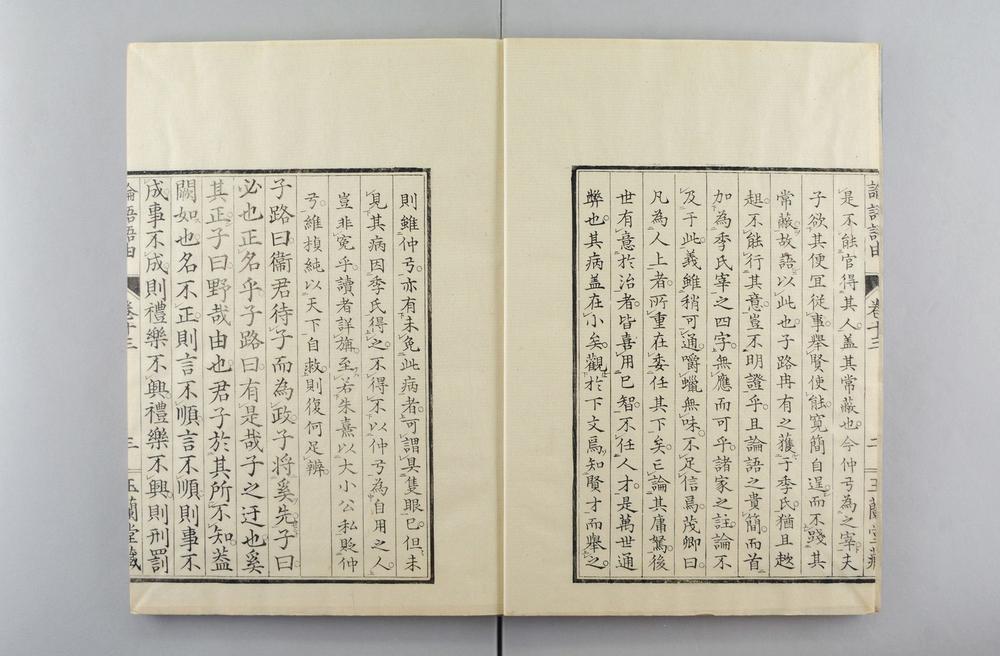 是不能官得其人蓋其常蔽也今仲弓為之宰夫
子欲其便冝從事舉賢使能寛簡自逞而不踐其
常蔽故語以此也子路冉有之獲于季氏猶且趑
趄不能行其意豈不明證乎且論語之貴簡而首
加為季氏宰之四字無應而可乎諸家之註論不
及于此義雖稍可通嚼蠟無味不足信焉茂卿曰
凡為人上者所重在委任其下矣亡論其庸駑後
世有意於治者皆喜用已智不任人才是萬世通
弊也其病蓋在小矣觀於下文焉知賢才而舉之
則雖仲弓亦有未免此病者可謂具隻眼已但未
見其病因季氏得之不得不以仲弓為自用之人
豈非寃乎讀者詳旃至若朱熹以大小公私貶仲
弓維楨純以天下自救則復何足辨
子路曰衞君待子而為政子將奚先子曰
必也正名乎子路曰有是哉子之迂也奚
其正子曰野哉由也君子於其所不知蓋
闕如也名不正則言不順言不順則事不
成事不成則禮樂不興禮樂不興則刑罰
論語語由 卷十三 三 玉蘭堂藏